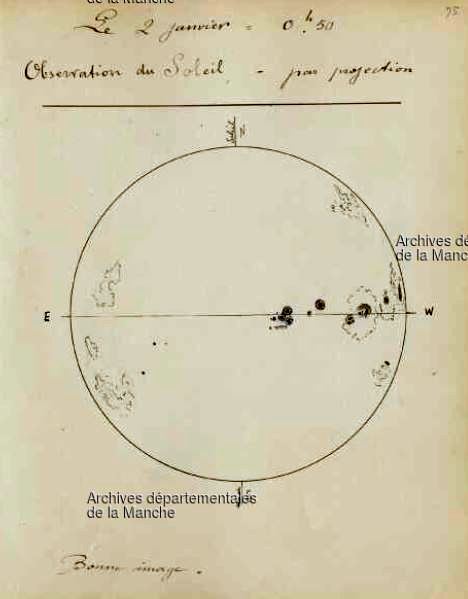 de la Manche
75
Le 2 janvier = 0.h 50
Observation du Soleil - par projection
N
Archives dé
de la Manc
E
W
Archives départementales
de la Manche
Bonne image.